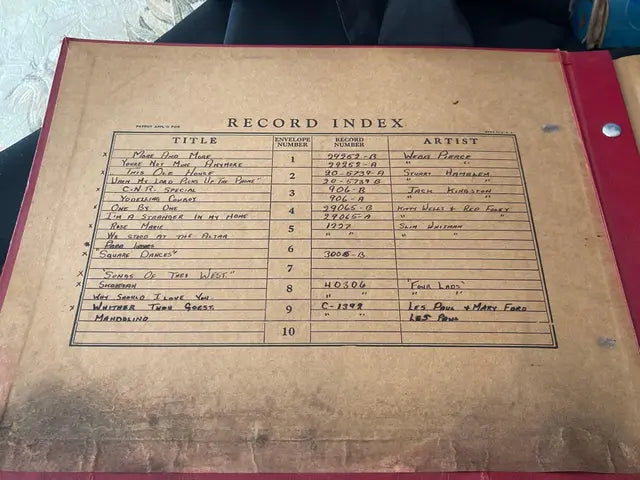 RECORD INDEX
PATENT APPL'D FOR
TITLE ENVELOPE NUMBER RECORD NUMBER ARTIST
x MORE AND MORE 1 29252-B WEBB PIERCE
YOU'RE NOT MINE ANYMORE 29252-A " "
x THIS OLE HOUSE 2 20-5739-A STUART HAMBLEN
"WHEN MY LORD PICKS UP THE PHONE" 20-5739-B " "
x C.N.R. SPECIAL 3 906-B JACK KINGSTON
YODELLING COWBOY 906-A " "
x ONE BY ONE 4 29065-B KITTY WELLS & RED FOLEY
I'M A STRANGER IN MY HOME 29065-A " "
x ROSE MARIE 5 1227 SLIM WHITMAN
WE STOOD AT THE ALTAR " " " "
x
x "SQUARE DANCES" 6 3005-B
7
x "SONGS OF THE WEST."
x SKOKIAAN 8 40306 "FOUR LADS"
WHY SHOULD I LOVE YOU. " " " "
x WHITHER THOU GOEST. 9 C-1392 LES PAUL & MARY FORD
MANDOLINO " " LES PAUL
10